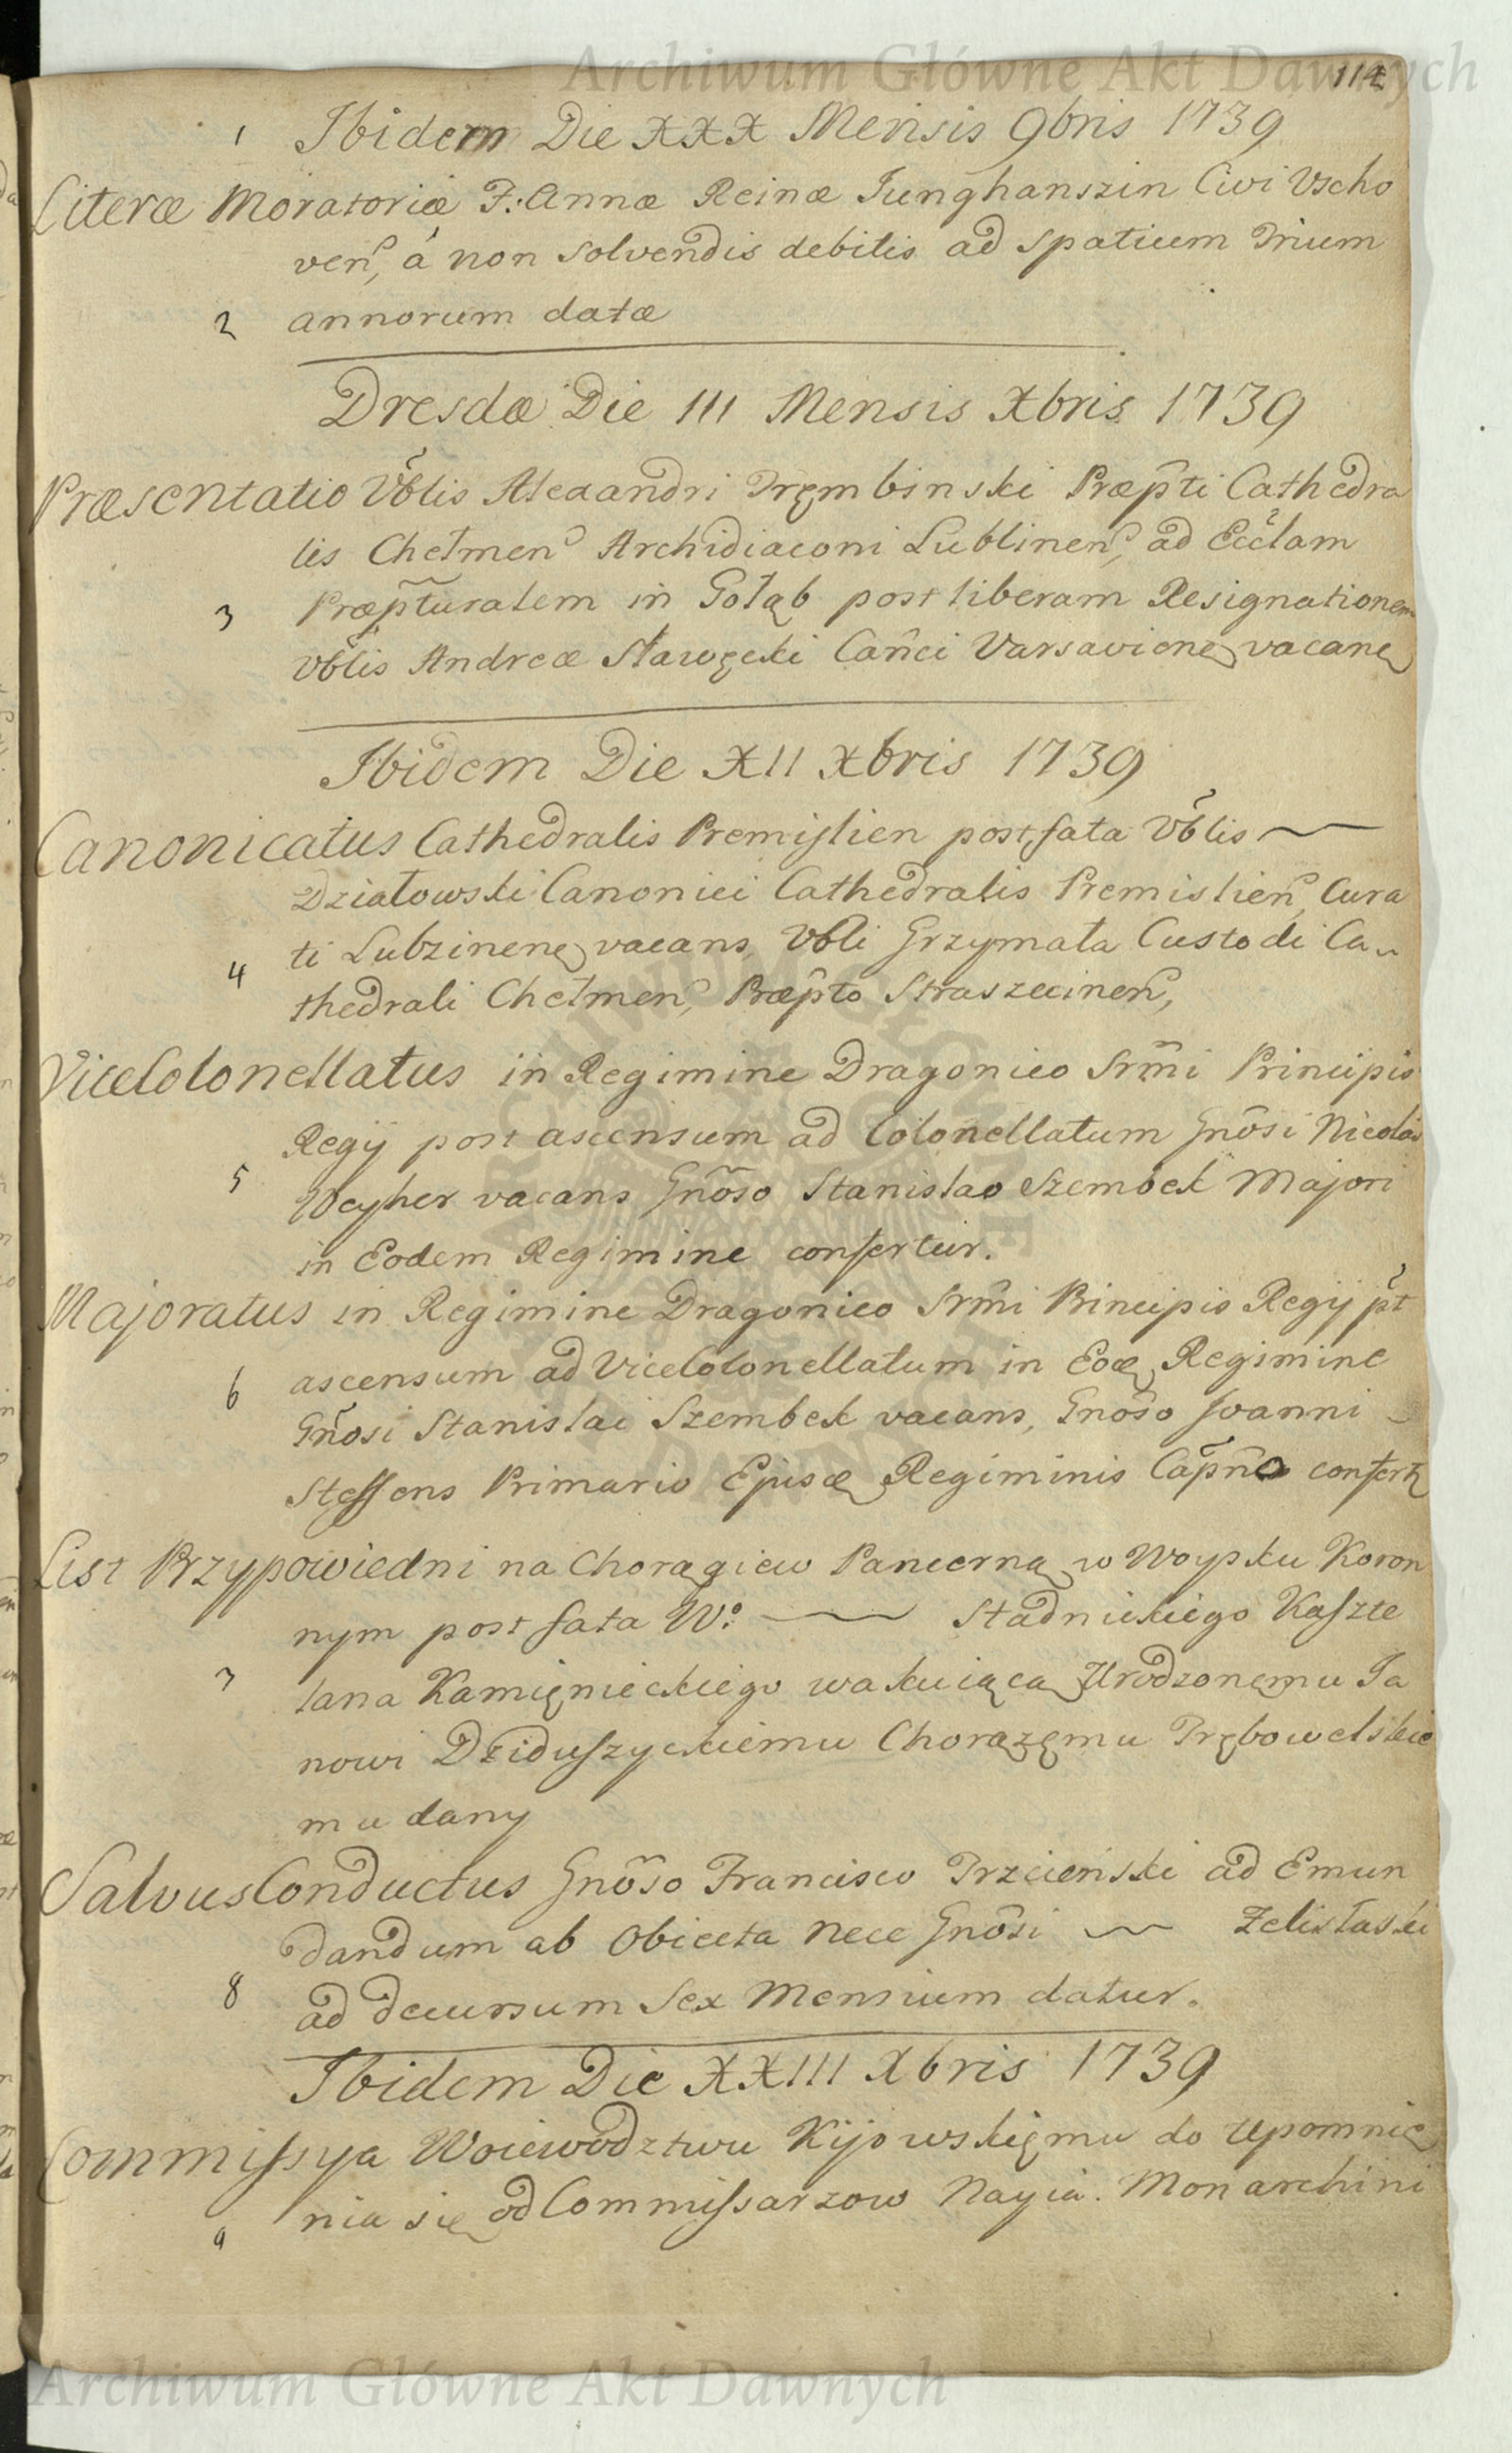 Archiwum Główne Akt Dawnych
114
1 Ibidem Die XXX Mensis 9bris 1739
Literæ Moratoriæ F: Annæ Reinæ Junghanszin Civi Vscho
veñ, á non solvendis debitis ad spatium Trium
2 annorum datæ
Dresdæ Die III Mensis Xbris 1739
Præsentatio Vb̃lis Alexandri Tręmbinski Præp̃ti Cathedra
lis Chełmeñ Archidiaconi Lublineñ, ad Eccl̃am
3 Præp̃turalem in Gołąb post liberam Resignationem
Vb̃lis Andreæ Sławęcki Cañci Varsavieneͣ vacaneͣ
Ibidem Die XII Xbris 1739
Canonicatus Cathedralis Premislien post fata Vb̃lis ~
Działowski Canonici Cathedralis Premislieñ, Cura
ti Lubzinene vacans, Vbli Grzymała Custodi Ca-
4 thedrali Chełmeñ, Præp̃to Straszecineñ,
ViceColonellatus in Regimine Dragonico Srm̃i Principis
Regij post ascensum ad Colonellatum Gnõsi Nicolai
5 Weyher vacans Gnõso Stanislao Szembek Majori
in Eodem Regimine confertur.
Majoratus in Regimine Dragonico Srm̃i Principis Regij p̃t
6 ascensum ad ViceColonellatum in Eoꝫ Regimine
Gñosi Stanislai Szembek vacans, Gnõso Joanni
Steffens Primario Ejusꝫ Regiminis Cap̃nõ confertꝫ
List Przypowiedni na Chorągiew Pancerną w Woysku Koron
nym post fata W.º ~ Stadnickiego Kaszte
7 lana Kamięnieckiego wakuiącą Urodzonęmu Ja
nowi Dziduszyckiemu Chorążęmu Trębowelskie
mu dany
Salvus Conductus Gnõso Francisco Trzcieński ad Emun
dandum ab Obiecta Nece Gnõsi ~ Zelisłaski
8 ad decursum Sex Mensium datur.
Ibidem Die XXIII Xbris 1739
Commissya Woiewodztwu Kijowskięmu do upomnie
9 nia się od Commissarzow Nayia. Monarchini
Archiwum Główne Akt Dawnych